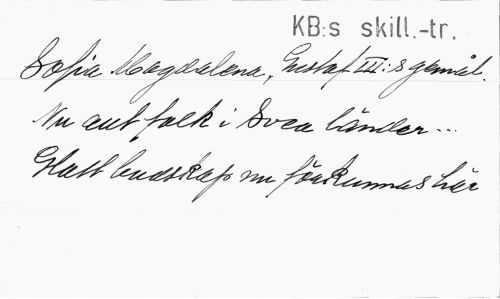 KB:s skill.-tr.
Sofia Magdalena, Gustaf III:s gemål.
Nu allt folk i Svea länder...
Glatt budskap nu förkunnas här